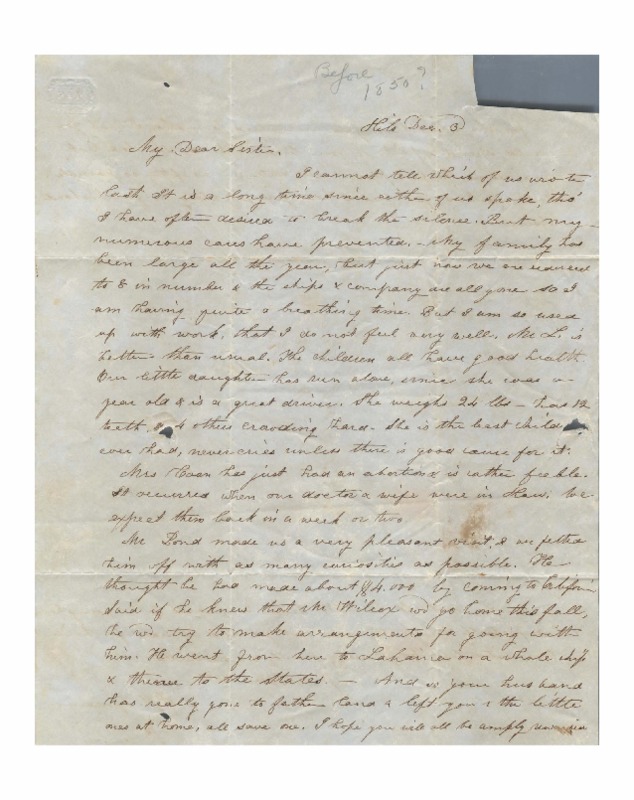 Before
1850?
Hilo Dec. 3
My Dear Sister.
I cannot tell which of us wrote
last It is a long time since either of us spoke, tho'
I have often desired to break the silence. But my
numerous cares have prevented. My family has
been large all the year, but just now we are reduced
to 8 in number & the ships & company are all gone so I
am having quite a breathing time. But I am so used
up with work, that I do not feel very well. Mr L. is
better than usual. The children all have good health
Our little daughter has run alone, since she was a
year old & is a great driver. She weighs 24 lbs - has 12
teeth, & 4 others crowding hard. She is the best child
ever had, never cries unless there is good cause for it.
Mrs Coan has just had an abortion & is rather feeble.
It occurred when our doctor & wife were in Haw. We
expect them back in a week or two
Mr Pond made us a very pleasant visit & we
him off with as many curiosities as possible. He
thought he had made about $4.000 by coming to
said if he knew that Mr Wilcox wd go home this fall,
he wd try to make arrangements for going with
him. He went from here to Lahaina on a whale ship
& thence to the States. — And so your husband
has really gone to father land & left you & the little
ones at home, all save one. I hope you will all be amply